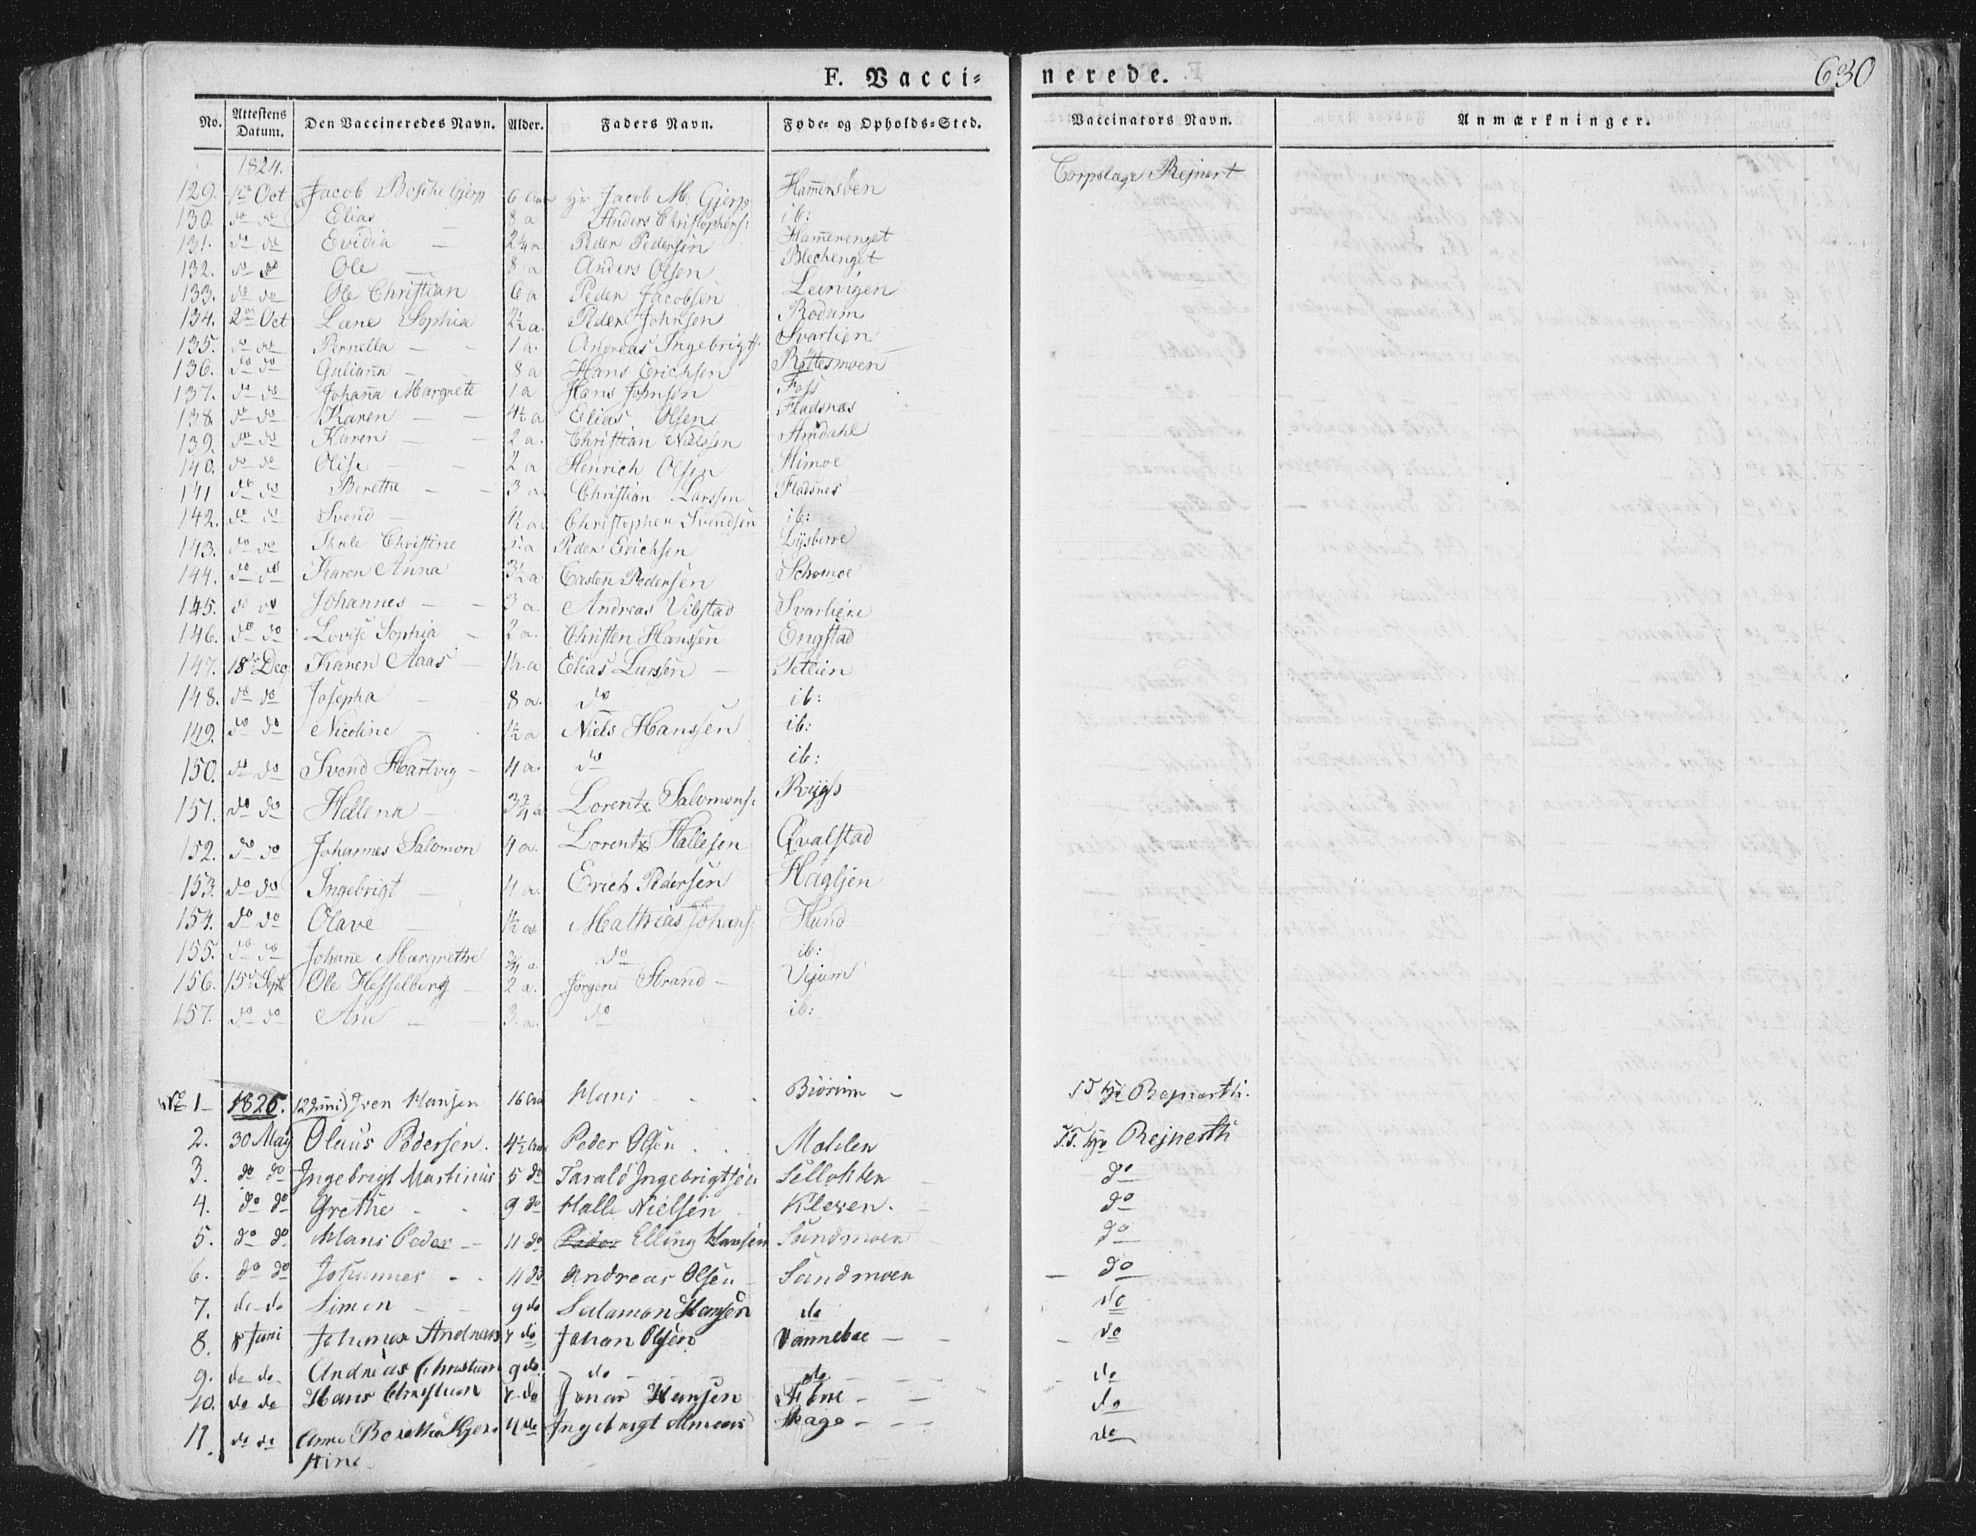 F. Vacci= nerede. 630
No. Attestens Datum. Den Vaccineredes Navn. Alder. Faders Navn. Føde- og Opholds-Sted. Vaccinators Navn. Anmærkninger.
1824.
129. 1ste Oct Jacob Gjerp 6 Hr Jacob M: Gjerp Corpslæge Rejnert
130. do do Elias 8 a Anders Christophers: ib:
131. do do Evidia 2¼ a Peder Pedersen Hamerenget
132. do do Ole 8 a Anders Olsen Blechenget
133. do do Ole Christian 6 a Peder Jacobsen Leirvigen
134. 2den Oct Læne Sophia 2½ a. Peder Johnsen Rodum
135. do do Pernella 1 a. Andreas Ingebrigts: Svarlien
136. do do 8 a Hans Erichsen Røttesmoen
137. do do Johaña Margrete 1 a Hans Johnsen Foss
138 do do Karen 4½ a Elias Olsen Fladsnæs
139. do do Karen 2 a. Christian Nielsen Amdahl
140. do do Olise 2 a Henrich Olsen Himoe
141 do do Berethe 3 a Christian Larssen Fladsnes
142. do do Svend 1½ a. Christopher Svendsen ib:
143. do do Christine 5. a Peder Erichsen
144. do do Karen Anna 3½ a Carsten Pedersen Schomoe
145. do do Johannes 3 a. Andreas Vibstad Svarliene
146. do do Lovise Sophia 2 a. Christen Hanssen Engstad
147. 18de Dec Karen Aaas 1½ a Elias Larssen Setlien
148. do do Josepha 8 a. do ib:
149. do do Nicoline ½ a Niels Hanssen ib:
150. do do Svend Hartvig 4 a. do ib:
151. do do Hellena 3¾ a Lorentz Salomons: Rygh
152. do do Johannes Salomon 4 a. Lorentz Hallesen Qvalstad
153. do do Ingebrigt 4 a. Erich Pedersen
154. do do Olave 1½ a Mathias Johans: Hund
155. do do Johane Margrethe ¾ a do ib:
156. 15de Septr Ole Hesselberg 2 a. Jørgene Strand Vejum
157. do do Ane 3 a. do ib:
No 1 1825. (12 Juni) Iven Hansen 16 Hans Biørum
2. 30 May Olaus Pedersen. 4½ Peder Olsen Moklen Rejnerth
3. do do Ingebrigt Martinus 5 do Tarald Ingebrigtsen do
4. do do Grethe 9 do Halle Nielsen Kleven. do
5. do do Hans Peder 11 do Elling Hansen Sandmoen do
6. do do Johannes 11 do Andreas Olsen Sandmoen do
7. do do Simon 9 do Salamon Hansen do do
8. 8 Juni Johannes Andreas 7 do Johan Olsen Vannebae do
9. do do Andreas Christian 9 do do do do
10. do do Hans Christian 7 do Jonas Hansen do
11. do do Anne Beretha Kjer- 4 do Ingebrigt Hage do
stine